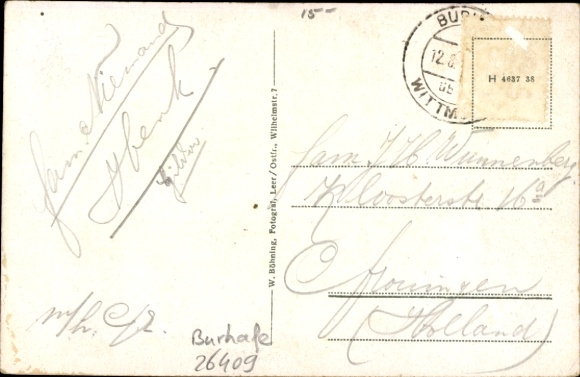 15-
BURH
12.8.
WITTM
H 4637 38
fam. Niemand
W. Böhning, Fotograf, Leer/Ostfr., Wilhelmstr. 7
fam. J. H. Wunnenberg
Kloosterstr. 16a
Groningen
(Holland)
Burhafe
26409